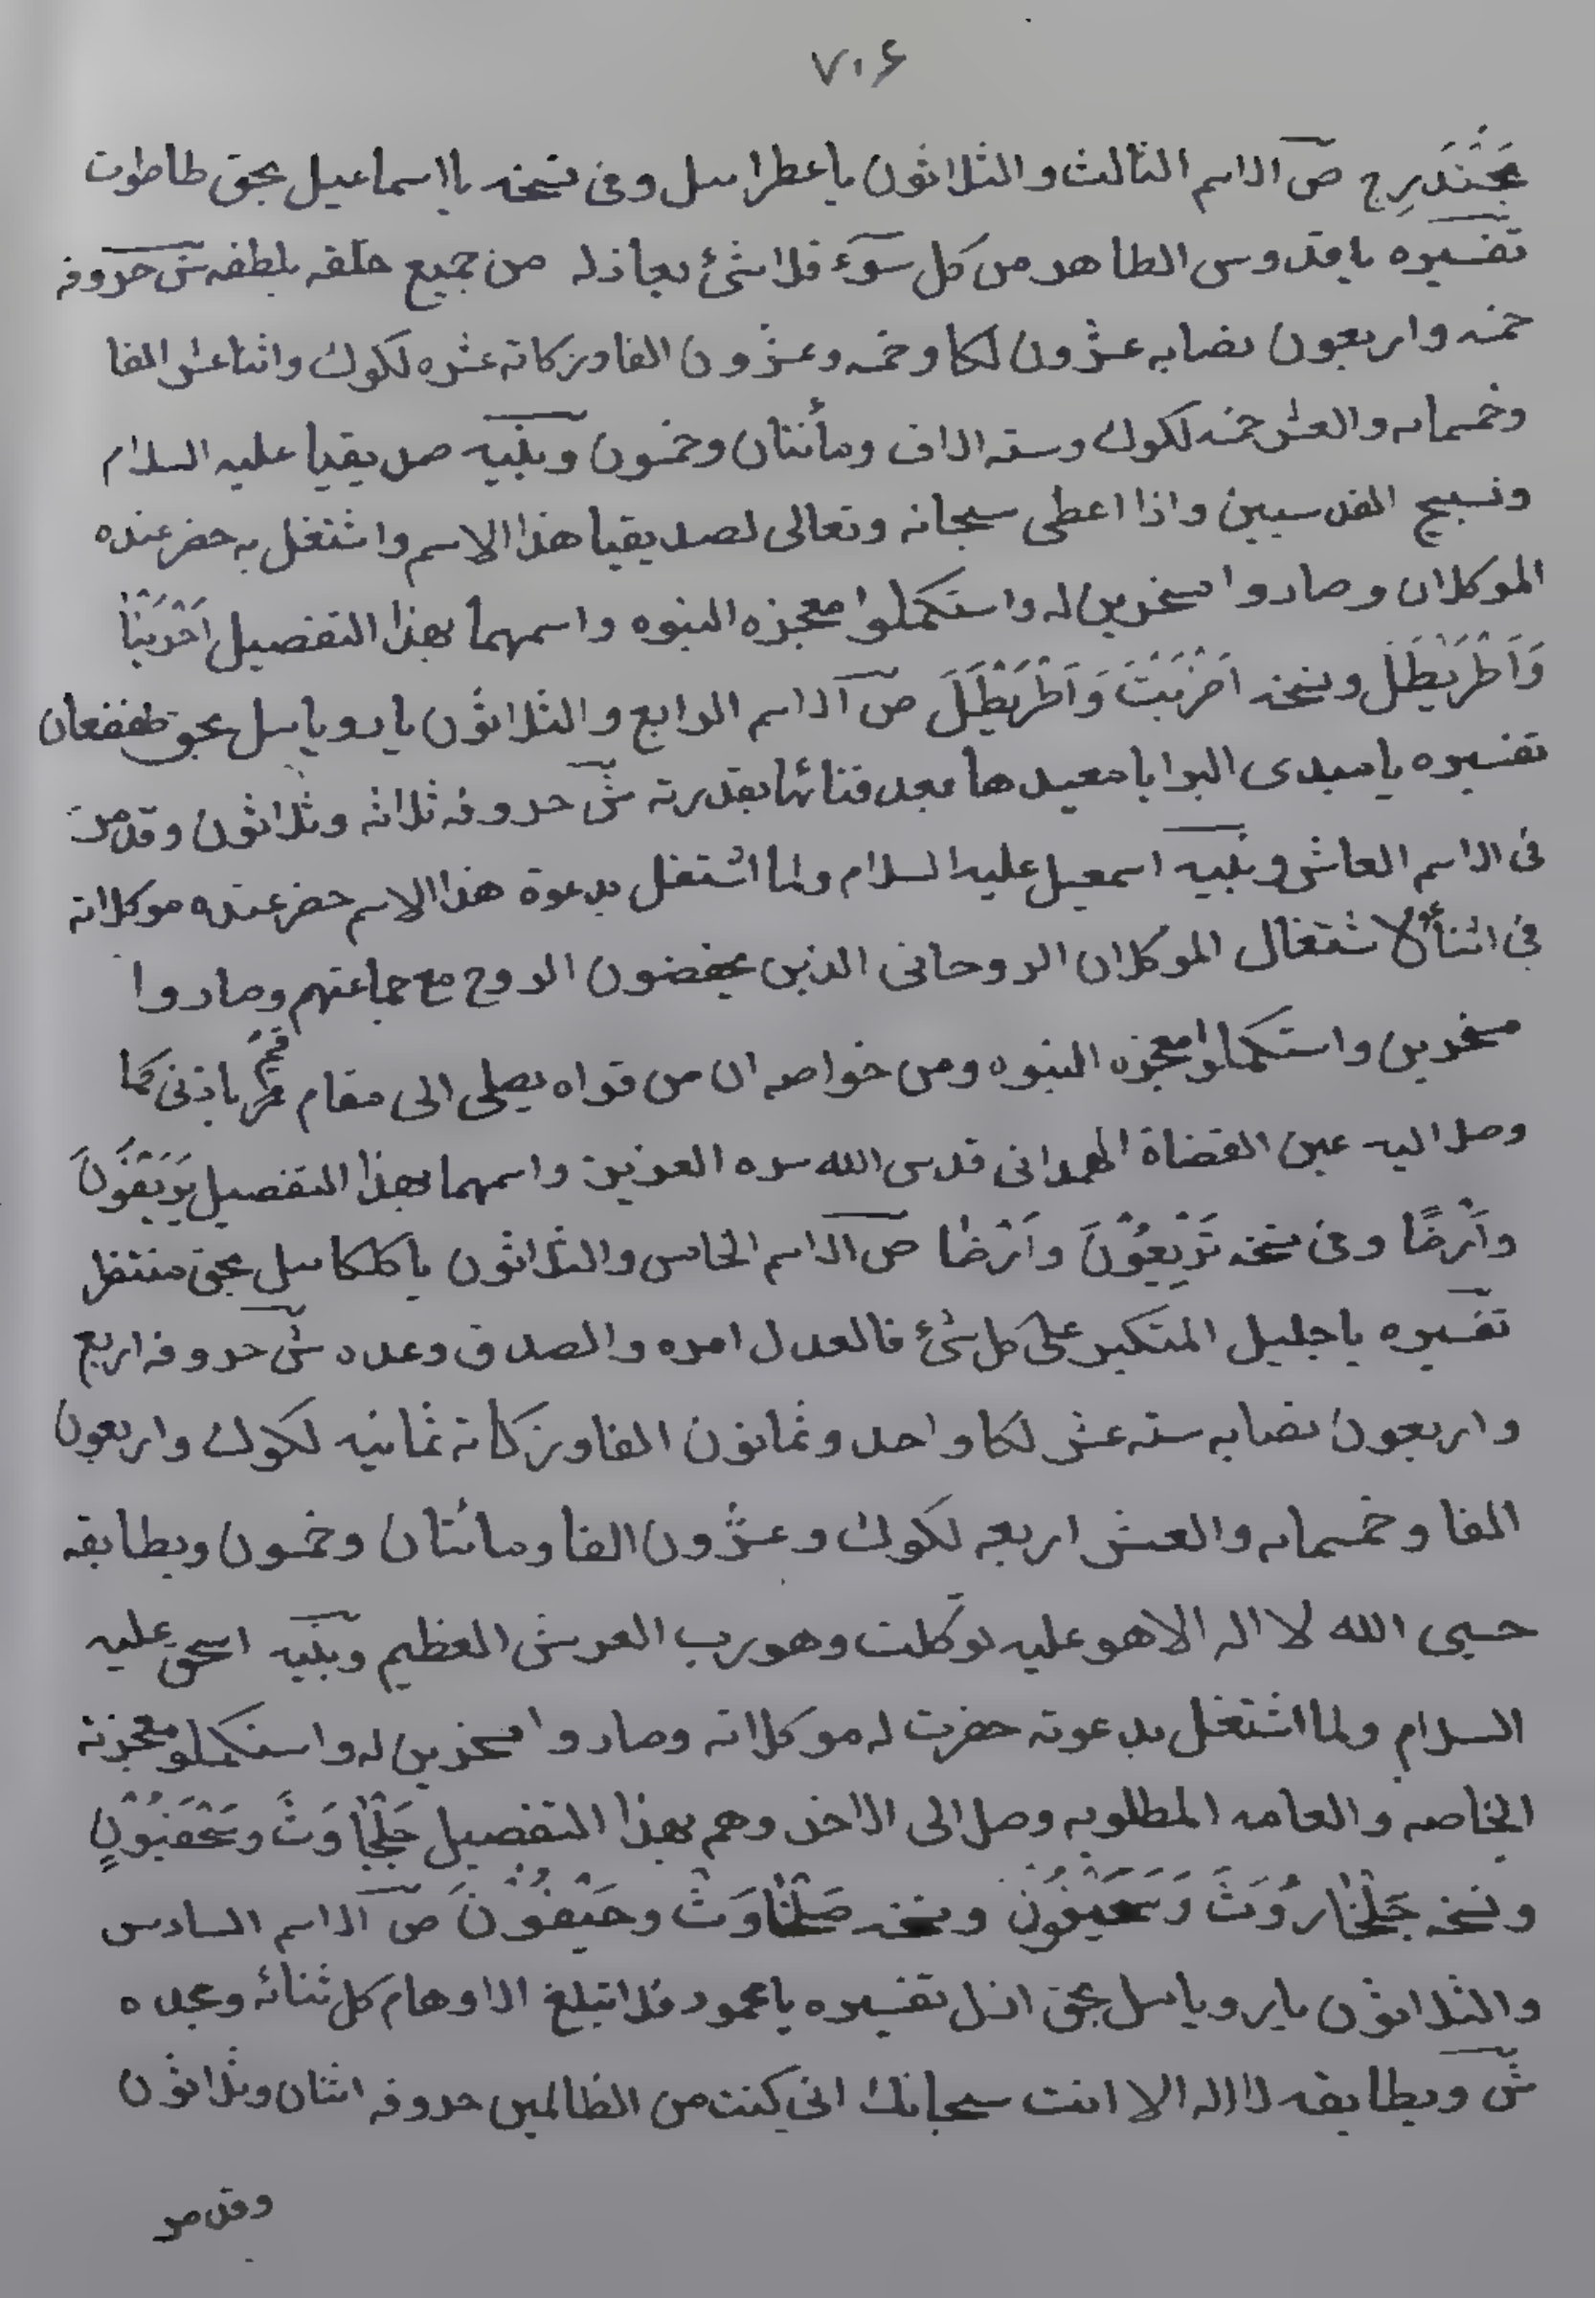 ٧٠۶
عَجْنَدَرِج ص الاسم الثالث والثلاثون ياعطرائيل وفى نسخه يااسماعيل بحق طاطوت
تفسيره ياقدوس الطاهر من كل سوء فلا شئ يعاذله من جميع خلقه بلطفه ش حروفه
خمسه واربعون نصابه عشرون لكا وخمسه وعشرون الفا وزكاته عشره لكوك واثنا عشر الفا
وخمسمائه والعشر خمسه لكوك وسته الاف ومأتتان وخمسون ونبيه صديقيا عليه السلام
ونسبح القدسيين واذا اعطى سبحانه وتعالى لصديقيا هذا الاسم واشتغل به حضر عنده
الموكلان وصاروا مسخرين له واستكملوا معجزه النبوه واسمهما بهذا التفصيل
وَاَطْرَيْطَلَ ونسخه وَاَطْرَيْطَلَ ص الاسم الرابع والثلاثون يارويائيل بحق طففعان
تفسيره يامبدى البرايا معيدها بعد فنائها بقدرته ش حروفه ثلاثه وثلاثون وقد مرت
فى الاسم العاشر ونبيه اسمعيل عليه السلام ولما اشتغل بدعوة هذا الاسم حضر عنده موكلاته
فى اثناء الاشتغال الموكلان الروحانى الذين يحفضون الروح مع جماعتهم وصاروا
مسخرين واستكملوا معجزه النبوه ومن خواصه ان من قراه يصلى الى مقام قم باذنى كما
وصل اليه عين القضاة الهمدانى قدس الله سره العزيز واسمهما بهذا التفصيل
وَاَرَضًا وفى نسخه تَرَيعُوْنَ وَاَرْضًا ص الاسم الخامس والثلاثون ياكلكائيل بحق منتظر
تفسيره ياجليل المتكبر على كل شئ فالعدل امره والصدق وعده ش حروفه اربع
واربعون نصابه سته عشر لكا واحد وثمانون الفا وزكاته ثمانيه لكوك واربعون
الفا وخمسمائه والعشر اربعه لكوك وعشرون الفا ومائتان وخمسون ويطابقه
حسبى الله لا اله الا هو عليه توكلت وهو رب العرش العظيم ونبيه اسحق عليه
السلام ولما اشتغل بدعوته حضرت له موكلاته وصاروا مسخرين له واستكملو معجزته
الخاصه والعامه المطلوبه وصل الى الاخذ وهم بهذا التفصيل
ونسخه ونسخه ص الاسم السادس
والثلاثون يايرويائيل بحق ازل تفسيره يامحمود فلا تبلغ الاوهام كل ثنائه ومجده
ش ويطابقه لا اله الا انت سبحانك انى كنت من الظالمين حروفه اثنان وثلاثون
وقد مر